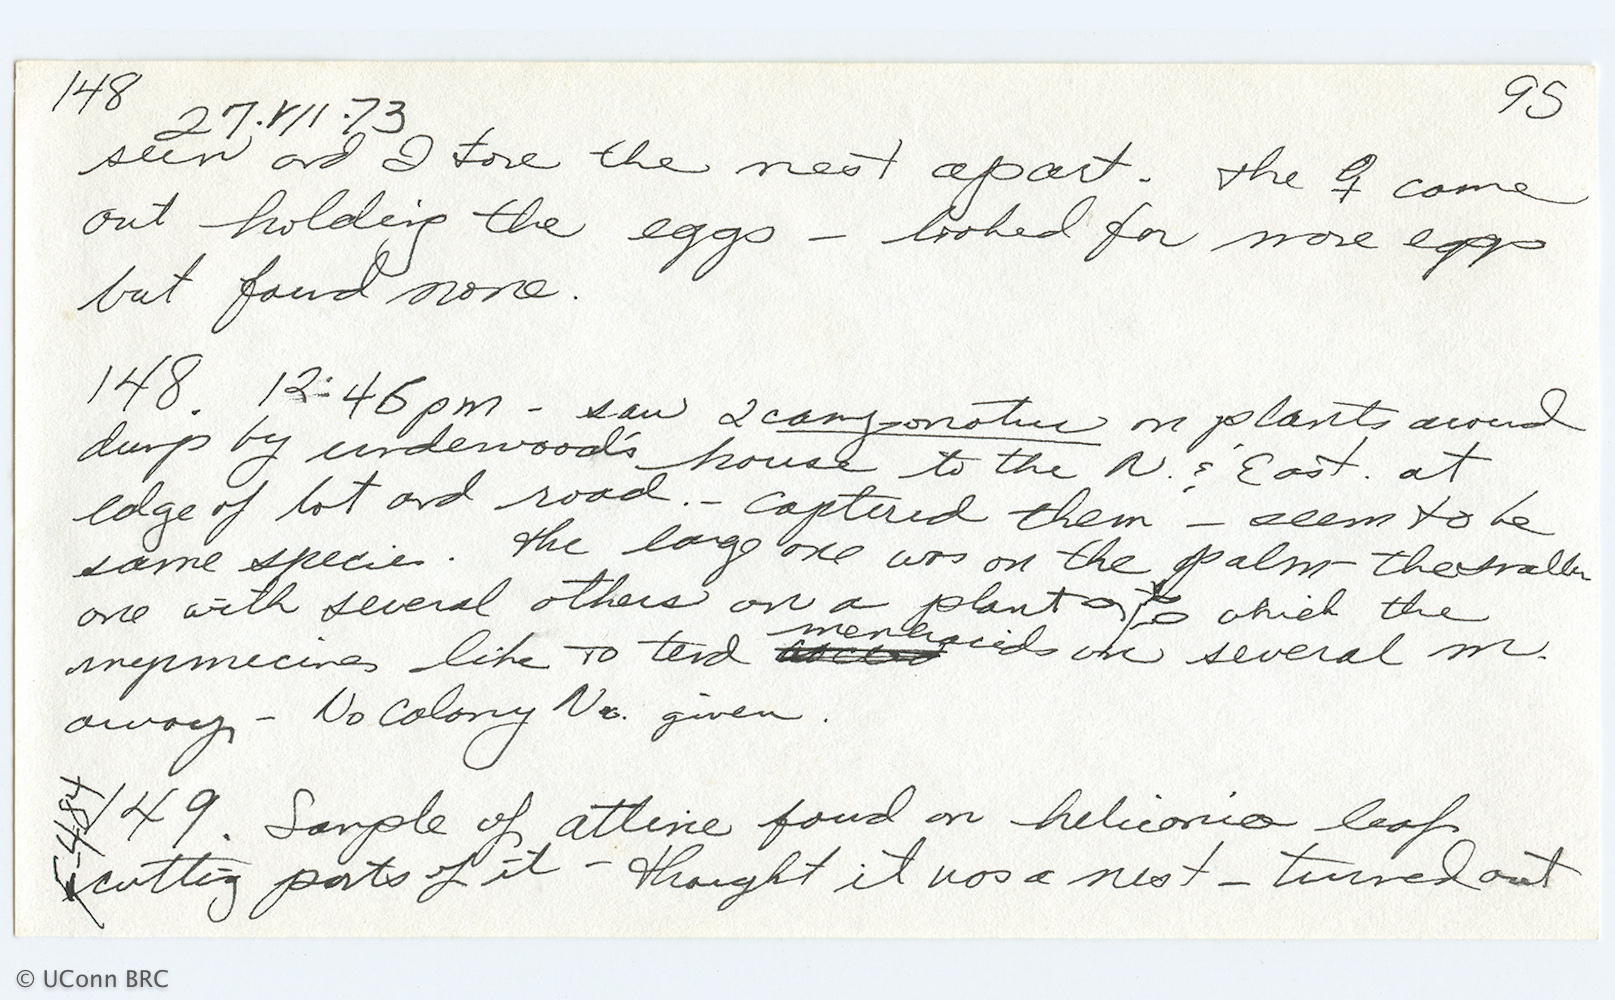 148
95
27.VII.73
seen and I tore the nest apart. The ♀ came
out holding the eggs – looked for more eggs
but found none.
148. 12:46pm - saw 2 camponotus on plants around
dump by underwood's house to the N. & East. at
edge of lot and road. – captured them – seem to be
same species. The large one was on the palm – the smaller
one with several others on a plant to which the
myrmecines like to tend membracids on several m.
away – No Colony No. given.
149. Sample of attine found on heliconia leaf
cutting parts of it – thought it was a nest – turned out
© UConn BRC